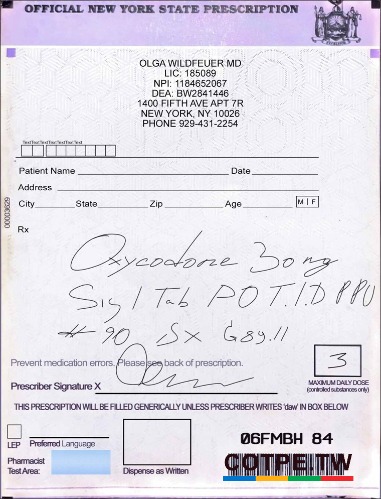 OFFICIAL NEW YORK STATE PRESCRIPTION
OLGA WILDFEUER MD
LIC: 185089
NPI: 1184652067
DEA: BW2841446
1400 FIFTH AVE APT 7R
NEW YORK, NY 10026
PHONE 929-431-2254
Patient Name Date
Address
City State Zip Age M F
Rx
Oxycodone 30 mg
Sig 1 Tab PO T.I.D PRN
# 90 Dx G89.11
3
Prevent medication errors. Please see back of prescription.
Prescriber Signature X
MAXIMUM DAILY DOSE
(controlled substances only)
THIS PRESCRIPTION WILL BE FILLED GENERICALLY UNLESS PRESCRIBER WRITES 'daw' IN BOX BELOW
LEP Preferred Language
Pharmacist
Test Area:
Dispense as Written
06FMBH 84